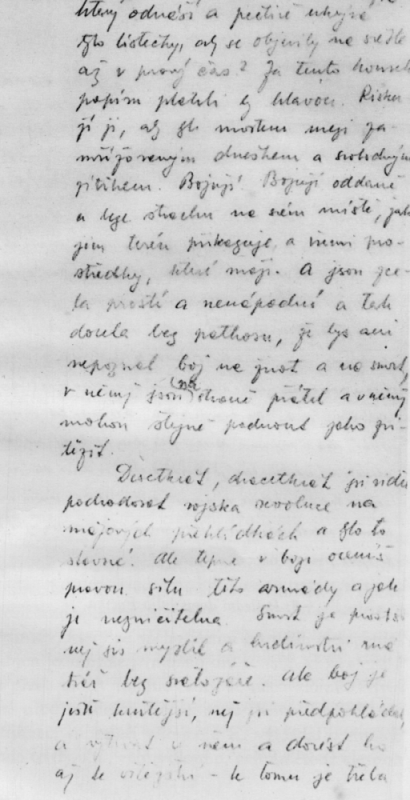 který odnáší a pečlivě ukrývá
tyto lístečky, aby se objevily na světle
až v pravý čas? Za tento kousek
papíru platili by hlavou. Risku-
jí ji, aby byl mostem mezi za-
mřížovaným dneškem a svobodným
zítřkem. Bojují. Bojují oddaně
a beze strachu na svém místě, jak
jim terén přikazuje, a všemi pro-
středky, které mají. A jsou zce-
la prostí a nenápadní a tak
docela bez pathosu, že bys ani
nepoznal boj na život a na smrt,
v němž jsou na straně přátel a v němž
mohou stejně padnout jako zví-
tězit.
Desetkrát, dvacetkrát jsi viděl
pochodovat vojska revoluce na
májových přehlídkách a bylo to
slavné. Ale teprve v boji oceníš
pravou sílu této armády a jak
je nezničitelná. Smrt je prostší
než sis myslil a hrdinství ne-
bez svatozáře. Ale boj je
ještě krutější, než jsi předpokládal,
a vytrvat v něm a dovést ho
až k vítězství - k tomu je třeba